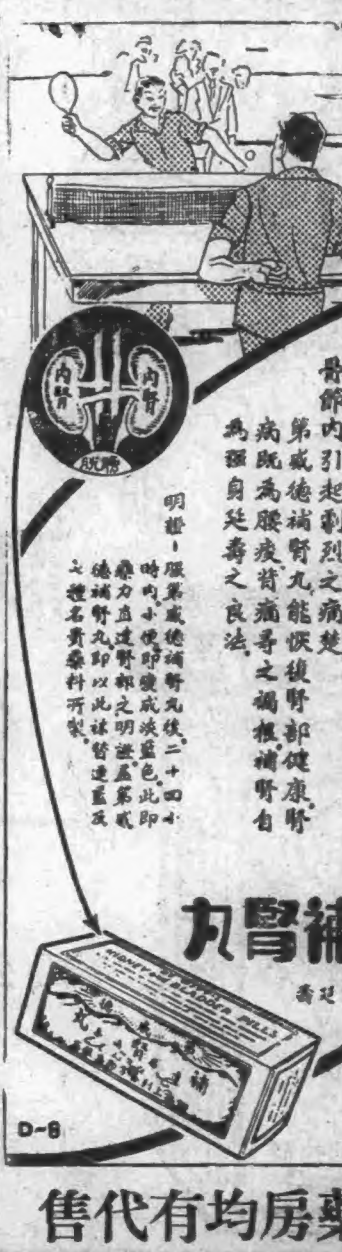 內腎
內腎
膀胱
骨節內引起劇烈之痛楚
第威德補腎丸，能恢復腎部健康，腎
病既為腰痠背痛等之禍根，補腎自
為强身延壽之良法。
明證－服第威德補腎丸後，二十四小
時內，小便即變成淡藍色，此即
藥力直達腎部之明證，蓋第威
德補腎丸，即以此
七種名貴藥料所製。
補腎丸
延壽
KIDNEY AND BLADDER PILLS
補腎丸
D-8
藥房均有代售